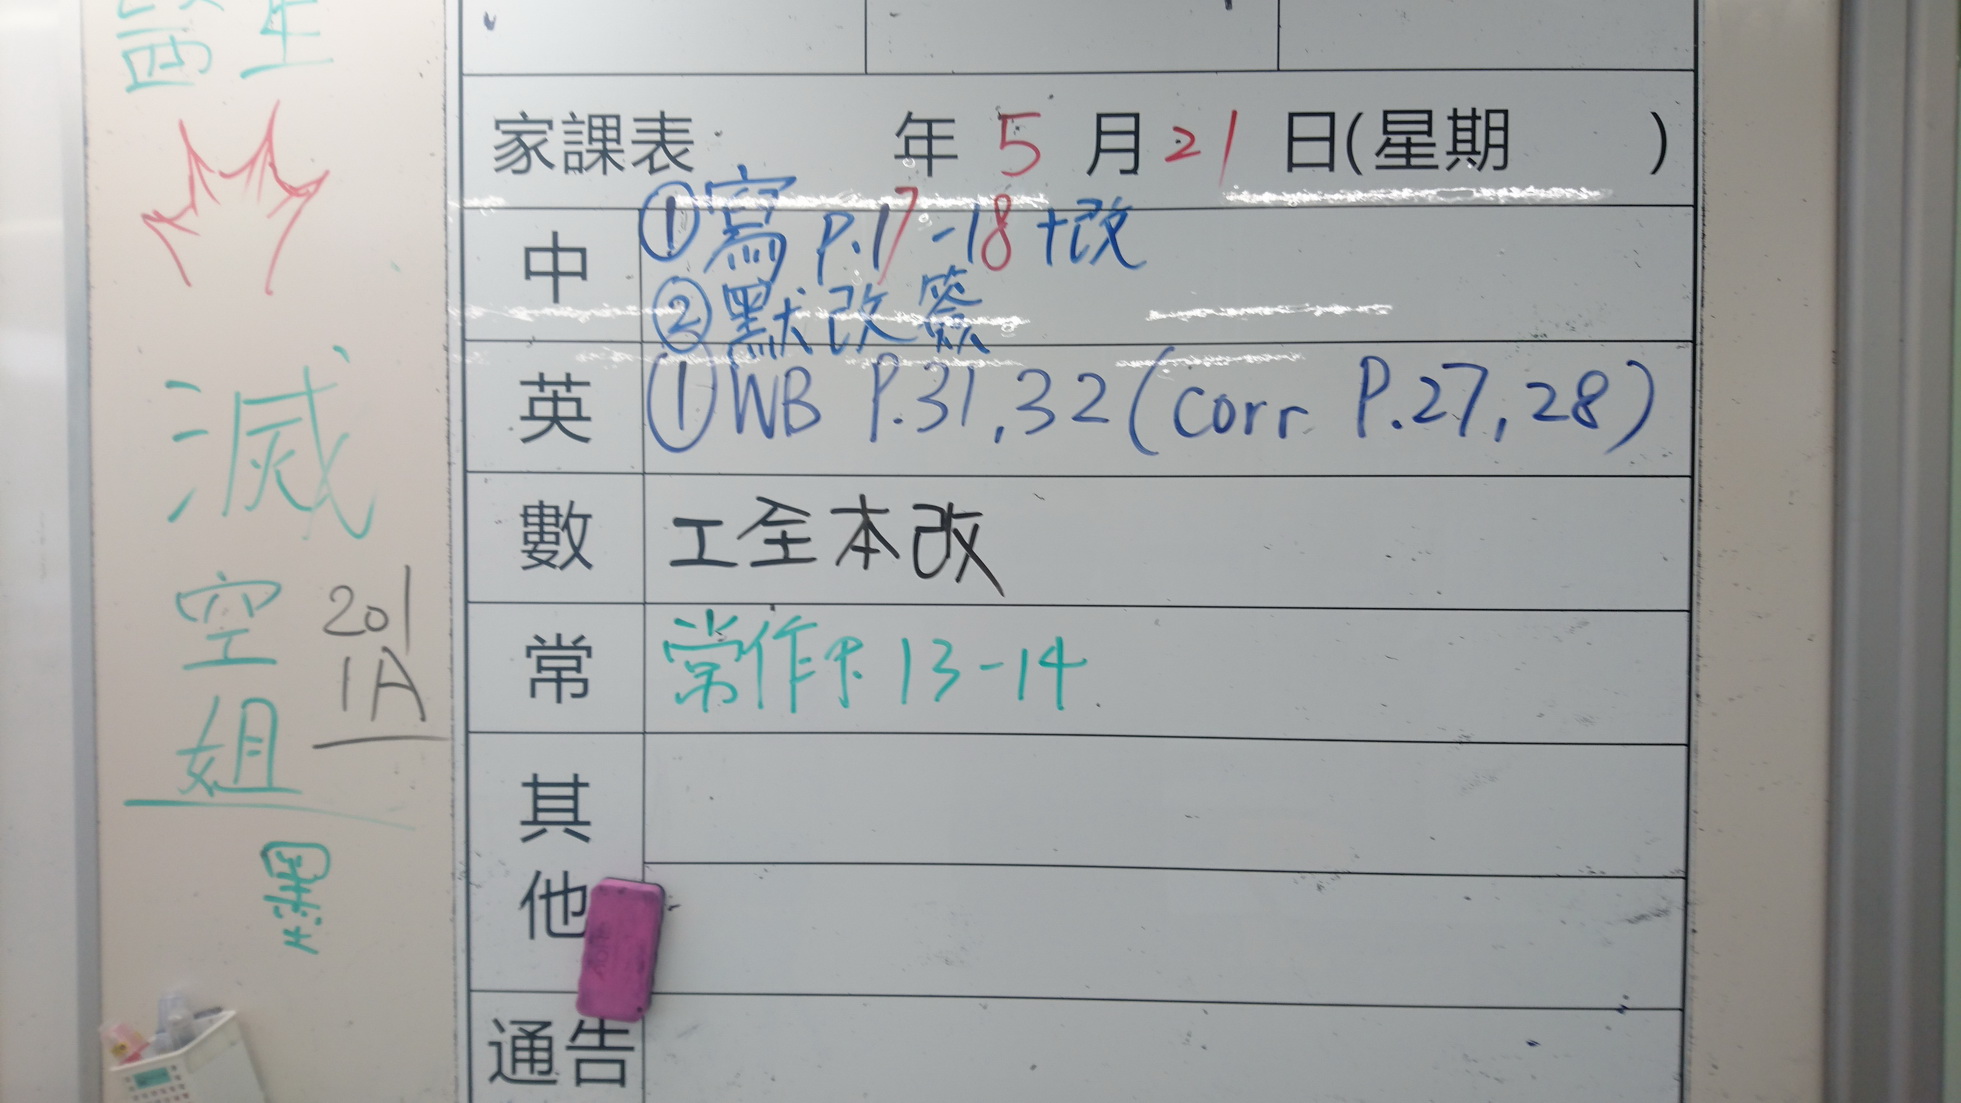 醫生
滅
空
姐
201
1A
黑
家課表 年 5 月 21 日(星期 )
中 ①寫 P.17-18+改
②默改簽
英 ①WB P.31,32(corr P.27,28)
數 工全本改
常 常作P. 13-14
其
他
通告